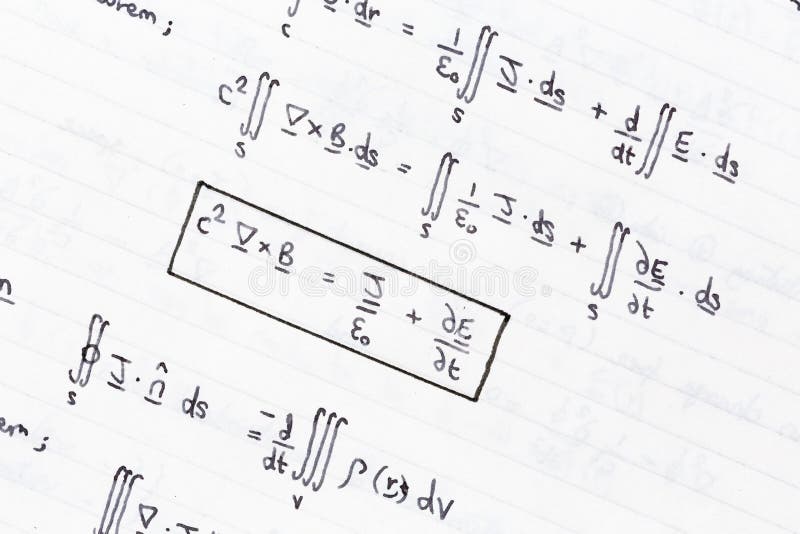 orem;
∮_c B·dr = 1/ε₀ ∬_S J·ds + d/dt ∬ E·ds
c² ∬_S ∇×B·ds = ∬_S 1/ε₀ J·ds + ∬_S ∂E/∂t·ds
c² ∇×B = J/ε₀ + ∂E/∂t
n
∯_S J·n̂ ds = -d/dt ∭_V ρ(r,t) dV
em;
∭ ∇·J
dreamstime